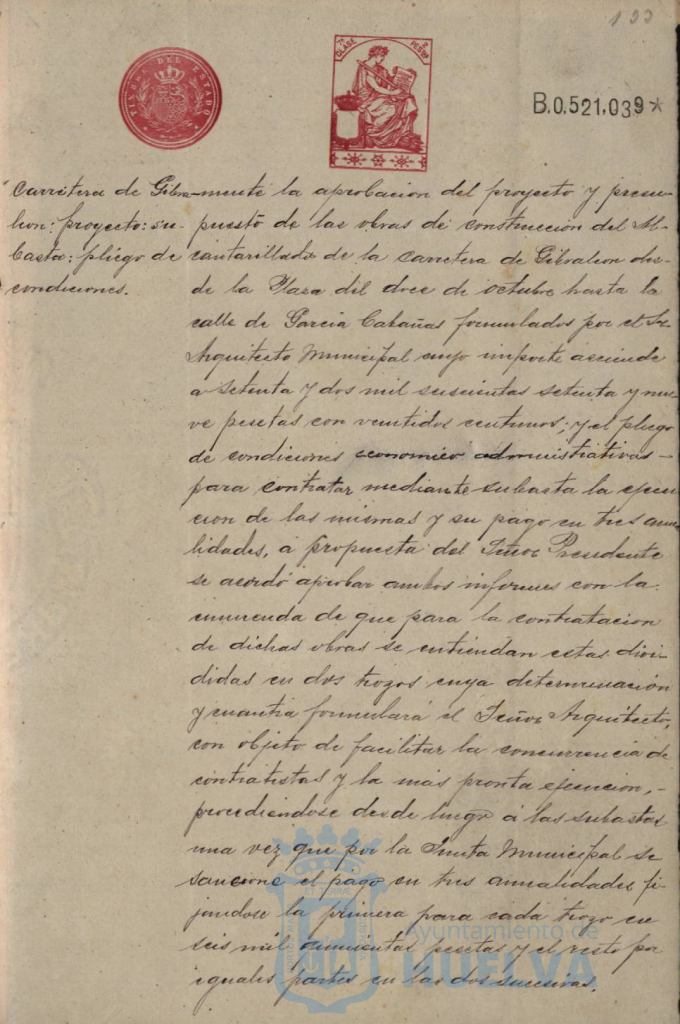 133
TIMBRE DEL ESTADO
7ª CLASE
PESETAS
B.0.521,039*
Carretera de Gibra-
leon: proyecto: su-
basta: pliego de
condiciones.
mente la aprobacion del proyecto y presu-
puesto de las obras de construccion del Al-
cantarillado de la carretera de Gibraleon des-
de la Plaza del doce de octubre hasta la
calle de Garcia Cabañas formulados por el Sr
Arquitecto Municipal cuyo importe asciende
a setenta y dos mil seiscientas setenta y nue-
ve pesetas con veintidos centimos; y el pliego
de condiciones economico administrativas
para contratar mediante subasta la ejecu-
cion de las mismas y su pago en tres anua-
lidades, á propuesta del Señor Presidente
se acordó aprobar ambos informes con la
enmienda de que para la contratacion
de dichas obras se entiendan estas divi-
didas en dos trozos cuya determinación
y cuantia formulará el Señor Arquitecto,
con objeto de facilitar la concurrencia de
contratistas y la más pronta ejecucion,-
procediendose desde luego á las subastas
una vez que por la Junta Municipal se
sancione el pago en tres anualidades fi-
jandose la primera para cada trozo en
seis mil quinientas pesetas y el resto por
iguales partes en las dos sucesivas.
Ayuntamiento de
HUELVA